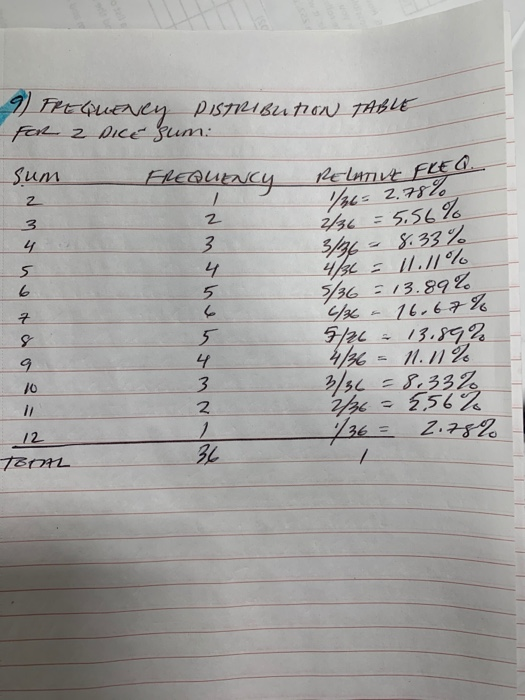 9) FREQUENCY DISTRIBUTION TABLE
FOR 2 DICE SUM:
SUM FREQUENCY RELATIVE FREQ.
2 1 1/36 = 2.78%
3 2 2/36 = 5.56%
4 3 3/36 = 8.33%
5 4 4/36 = 11.11%
6 5 5/36 = 13.89%
7 6 6/36 = 16.67%
8 5 5/36 = 13.89%
9 4 4/36 = 11.11%
10 3 3/36 = 8.33%
11 2 2/36 = 5.56%
12 1 1/36 = 2.78%
TOTAL 36 1